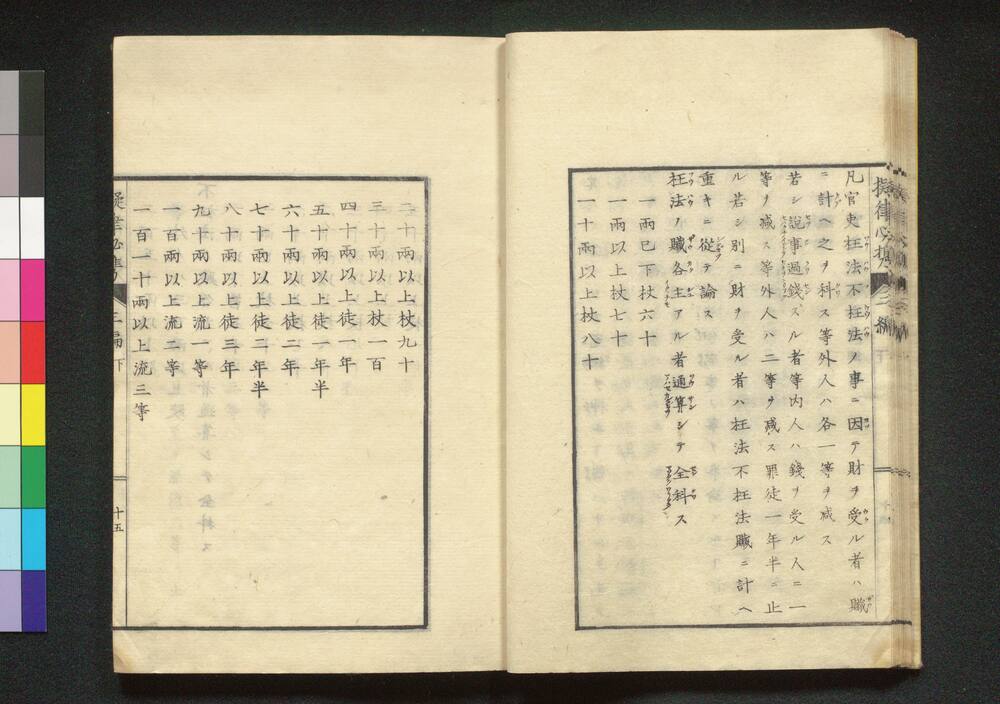 擬律必携 三編 下
凡官吏枉法不枉法ノ事ニ因テ財ヲ受ル者ハ贓
ニ計ヘ之ヲ科ス等外人ハ各一等ヲ減ス
若シ説事過錢スル者等内人ハ錢ヲ受ル人ニ一
等ヲ減ス等外人ハ二等ヲ減ス罪徒一年半ニ止
ル若シ別ニ財ヲ受ル者ハ枉法不枉法贓ニ計ヘ
重キニ從テ論ス
枉法ノ贓各主アル者通算シテ全科ス
一兩已下杖六十
一兩以上杖七十
一十兩以上杖八十
二十兩以上杖九十
三十兩以上杖一百
四十兩以上徒一年
五十兩以上徒一年半
六十兩以上徒二年
七十兩以上徒二年半
八十兩以上徒三年
九十兩以上流一等
一百兩以上流二等
一百一十兩以上流三等
擬律必携 三編 下 十五